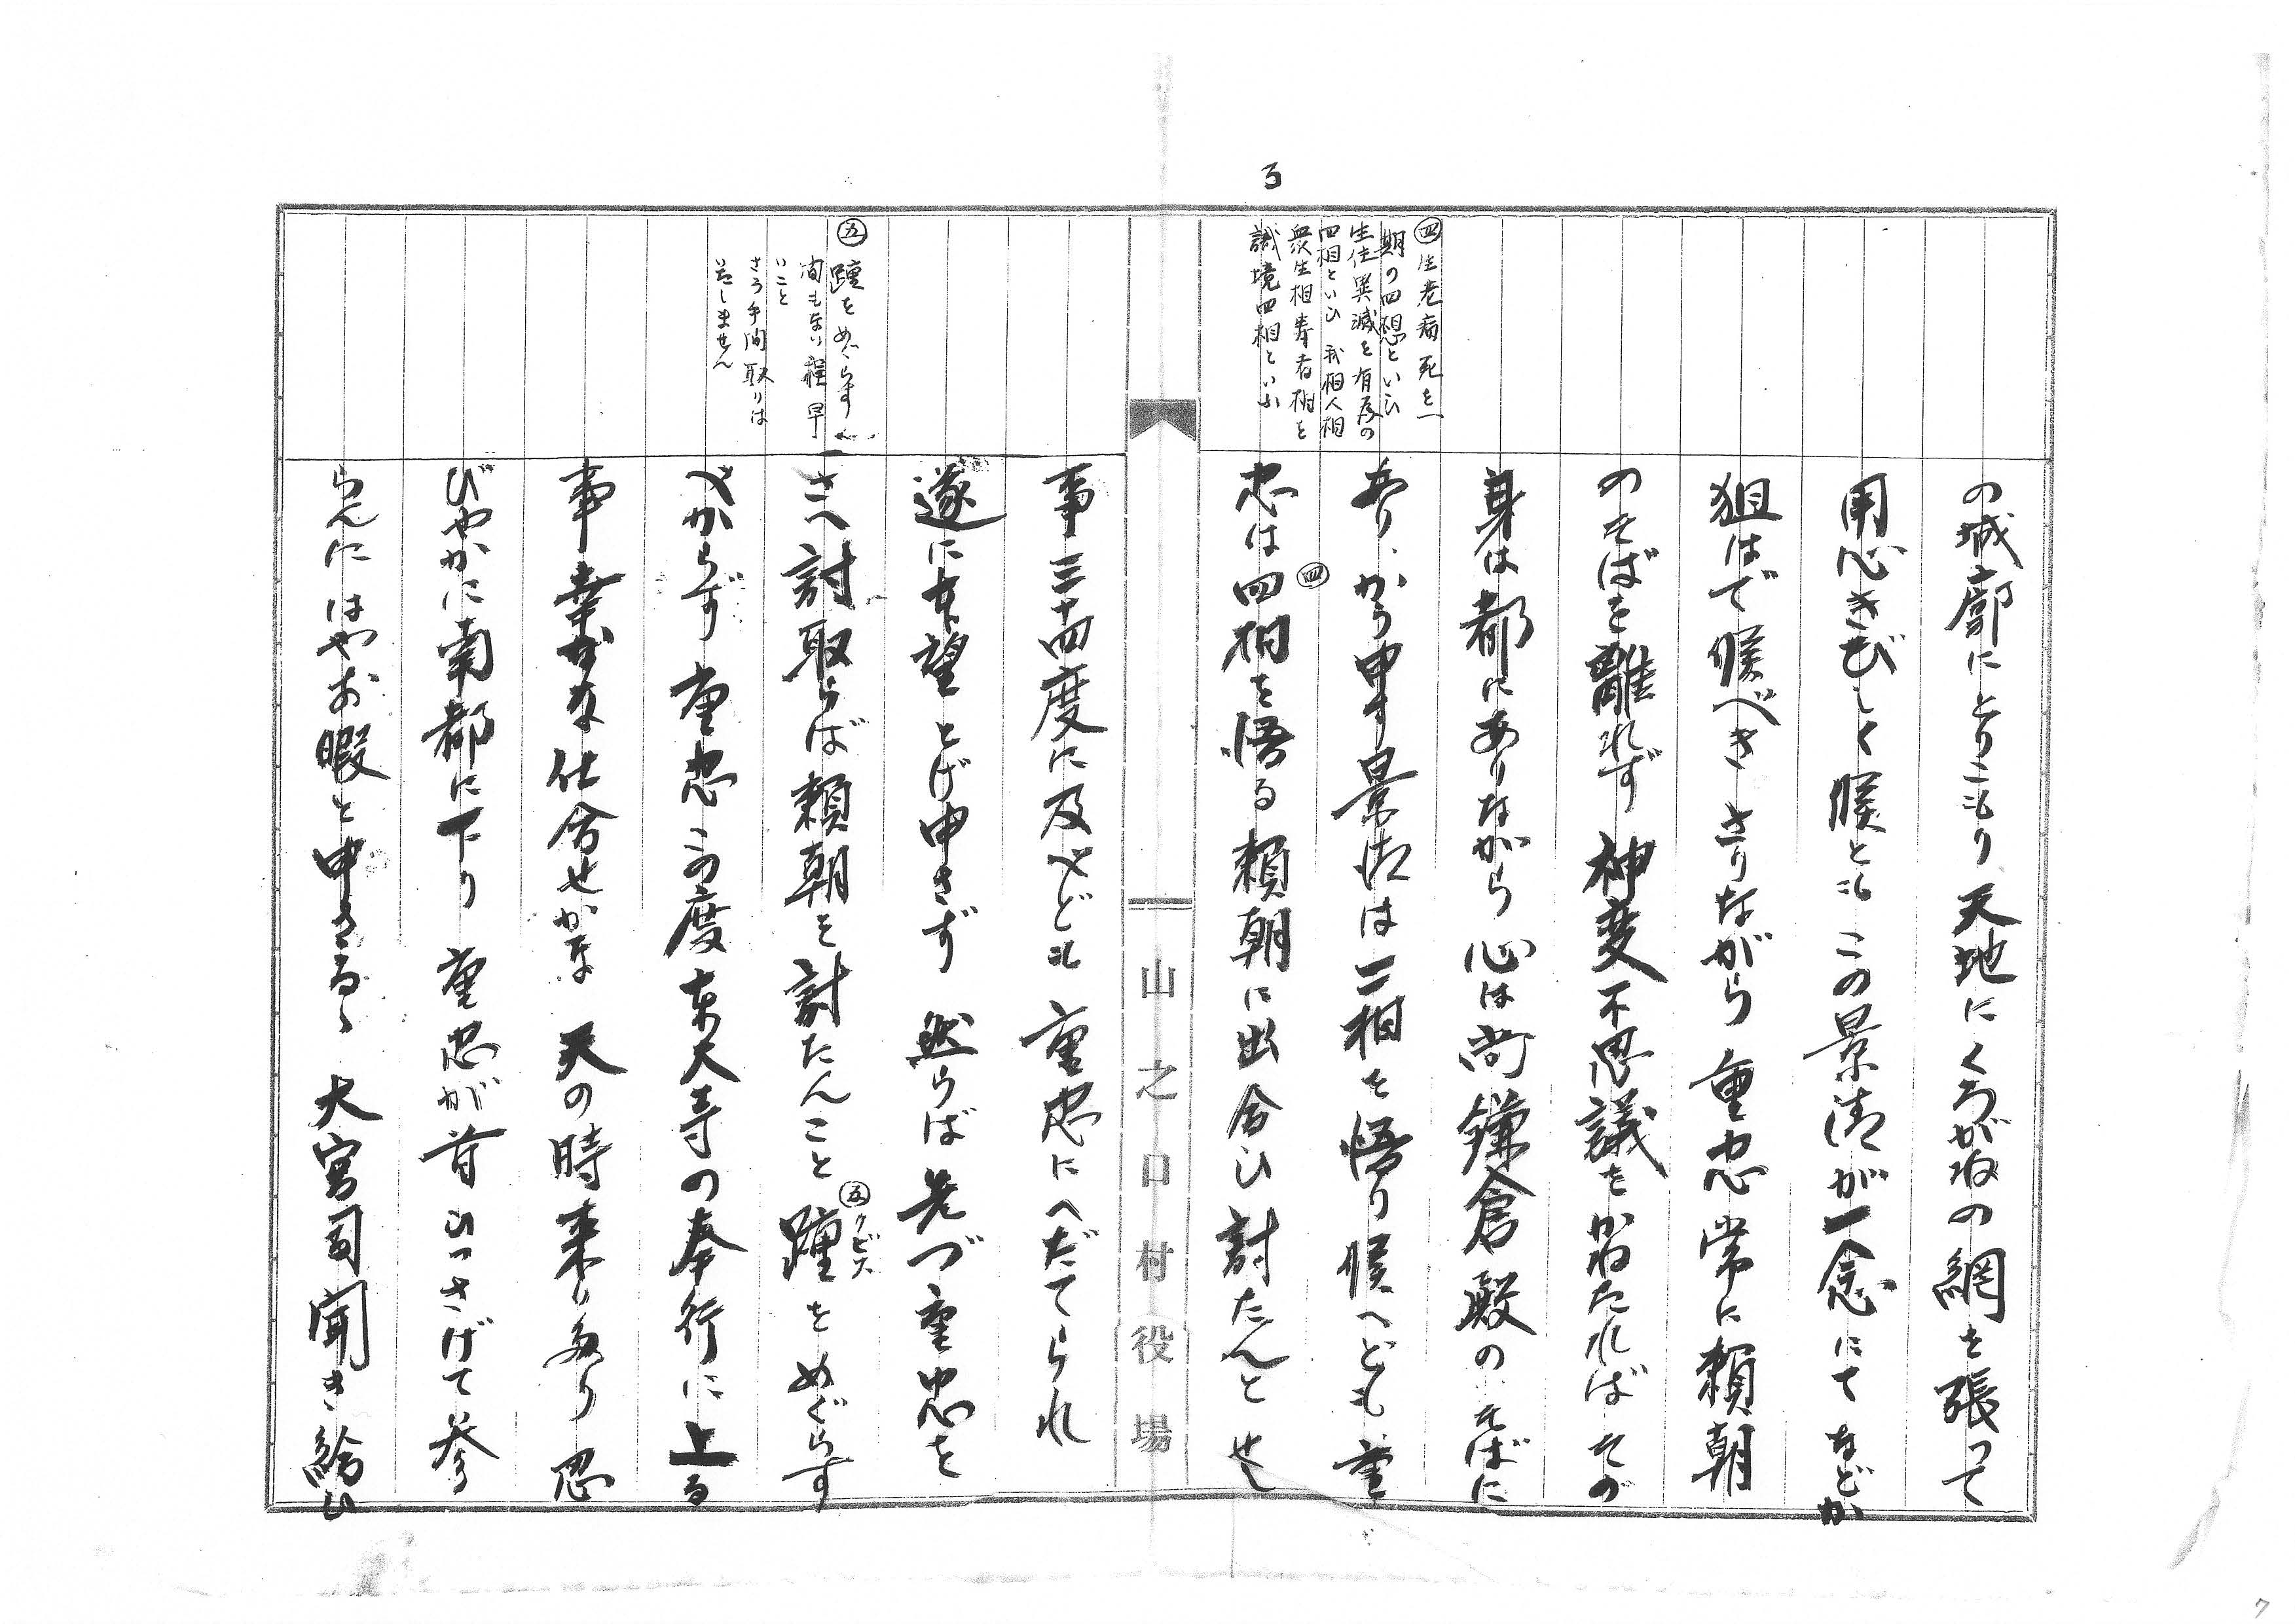 る
の城廓にとりこもり 天地にくろがねの網を張って
用心きびしく候とも この景清が一念にて などか
狙はで候べき さりながら 重忠常に頼朝
のそばを離れず 神変不思議をかねたれば その
身は都にありながら 心は尚鎌倉殿のそばに
あり、かう申す景清は二相を悟り候へども 重
忠は四相を悟る頼朝に出合ひ 討たんとせし
㊃
㊃生老病死を一
期の四想といひ
生住異滅を有為の
四相といひ 我相人相
衆生相寿者相を
識境四相といふ
山之口村役場
事三十四度に及べども 重忠にへだてられ
遂に本望とげ申さず 然らば先づ重忠を
さへ討取らば頼朝を討たんこと 踵をめぐらす
㊄クビス
べからず 重忠この度東大寺の奉行に上る
事 幸かな仕合せかな 天の時来りたり 忍
びやかに南都に下り 重忠が首ひっさげて参
らんに はやお暇と申さるゝ 大宮司聞き給ひ
㊄踵をめぐらす
間もない程早
いこと
さう手間取りは
致しません
7